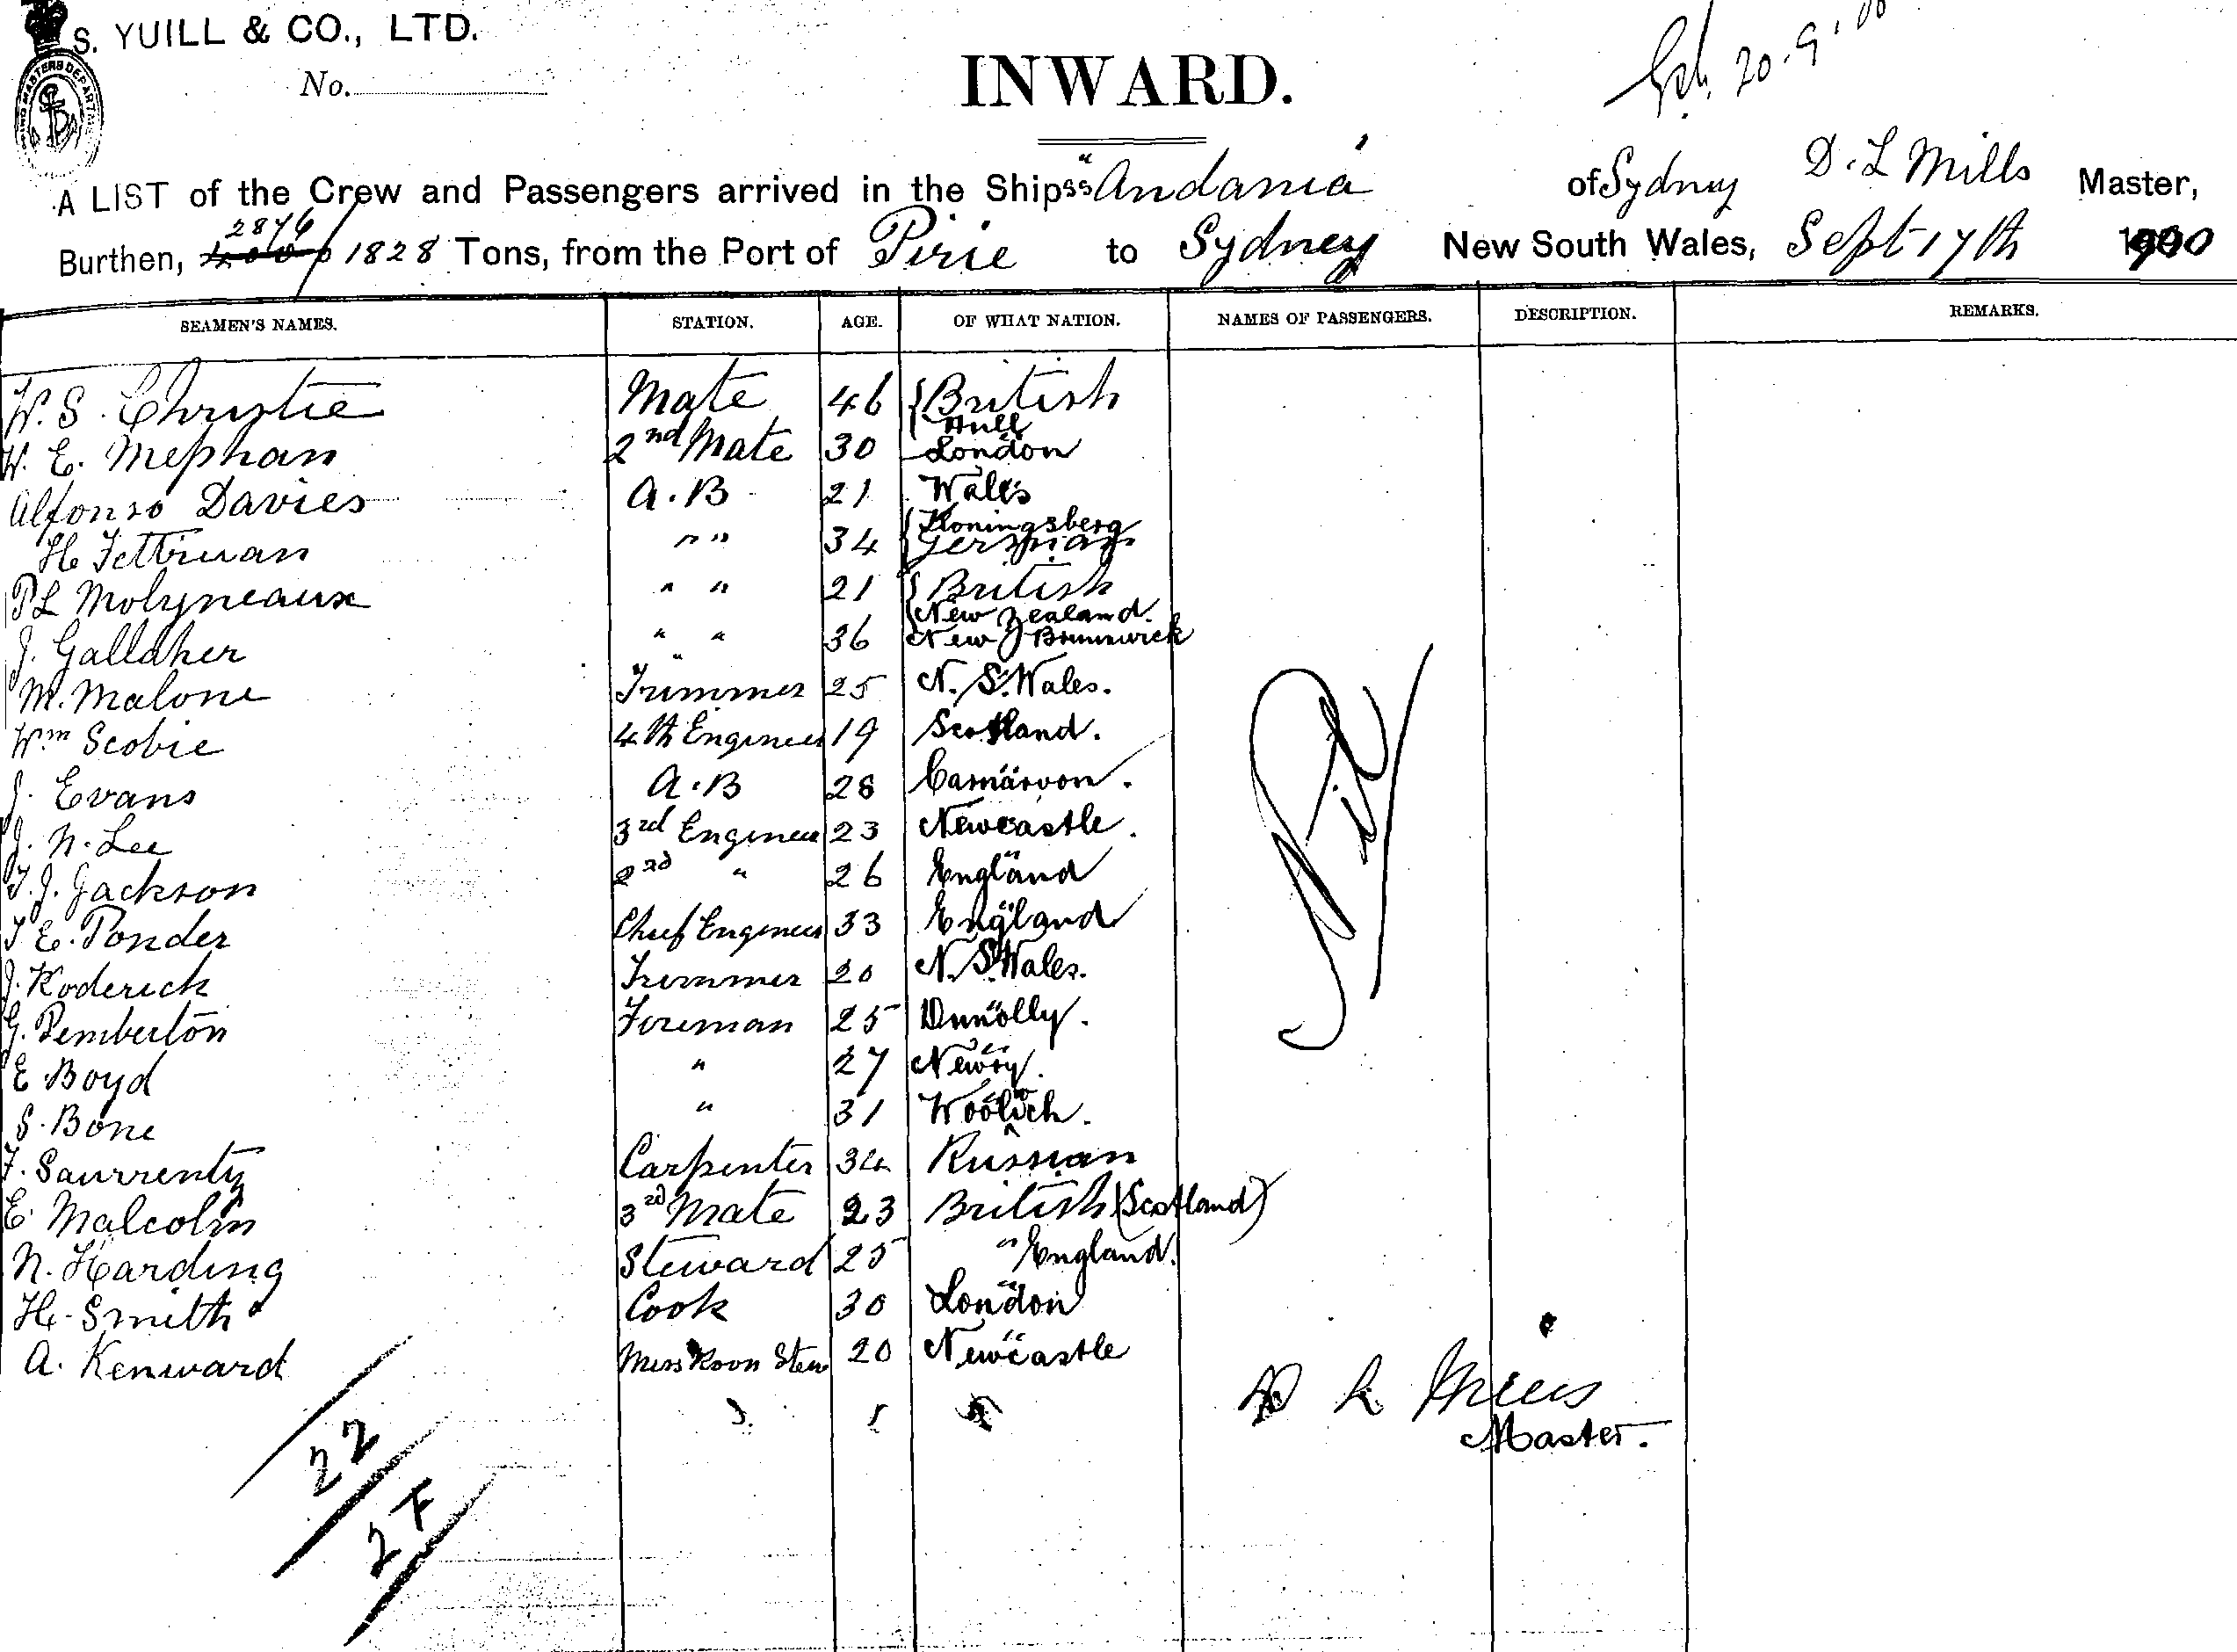 S. YUILL & CO., LTD.
No.
INWARD.
20.9.00
A LIST of the Crew and Passengers arrived in the Ship SS "Andania" of Sydney D. L Mills Master,
2876
Burthen, 1828 Tons, from the Port of Pirie to Sydney New South Wales, Sept 17th 1900
SEAMEN'S NAMES. STATION. AGE. OF WHAT NATION. NAMES OF PASSENGERS. DESCRIPTION. REMARKS.
W. S. Christie Mate 46 British
Hull
W. E. Mephan 2nd Mate 30 London
Alfonso Davies A.B 21 Wales
Koningsberg
H. Fettrman " " 34 German
P L Molyneaux " " 21 British
New Zealand.
J. Gallaher " " 36 New Brunswick
M. Malone Trimmer 25 N. S. Wales.
Wm Scobie 4th Engineer 19 Scotland.
J. Evans A.B 28 Carnarvon.
J. N. Lee 3rd Engineer 23 Newcastle.
T. J. Jackson 2nd " 26 England
T E. Ponder Chief Engineer 33 England
J. Roderick Trimmer 20 N. S. Wales.
G. Pemberton Fireman 25 Dunolly.
E Boyd " 27 Newry.
S. Bone " 31 Woolich.
F. Saurrenty Carpenter 34 Russian
E. Malcolm 3rd Mate 23 British (Scotland)
N. Harding Steward 25 " England.
H. Smith Cook 30 London
A. Kenward Mess Room Stew 20 Newcastle
Nil
D L Mills
Master.
22
2F